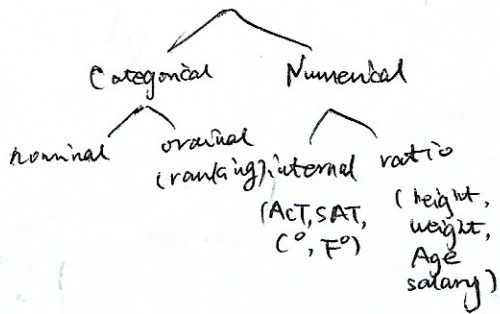 Categorical
Numerical
nominal
ordinal
(ranking)
internal
(ACT, SAT,
C°, F°)
ratio
(height,
weight,
Age
salary)